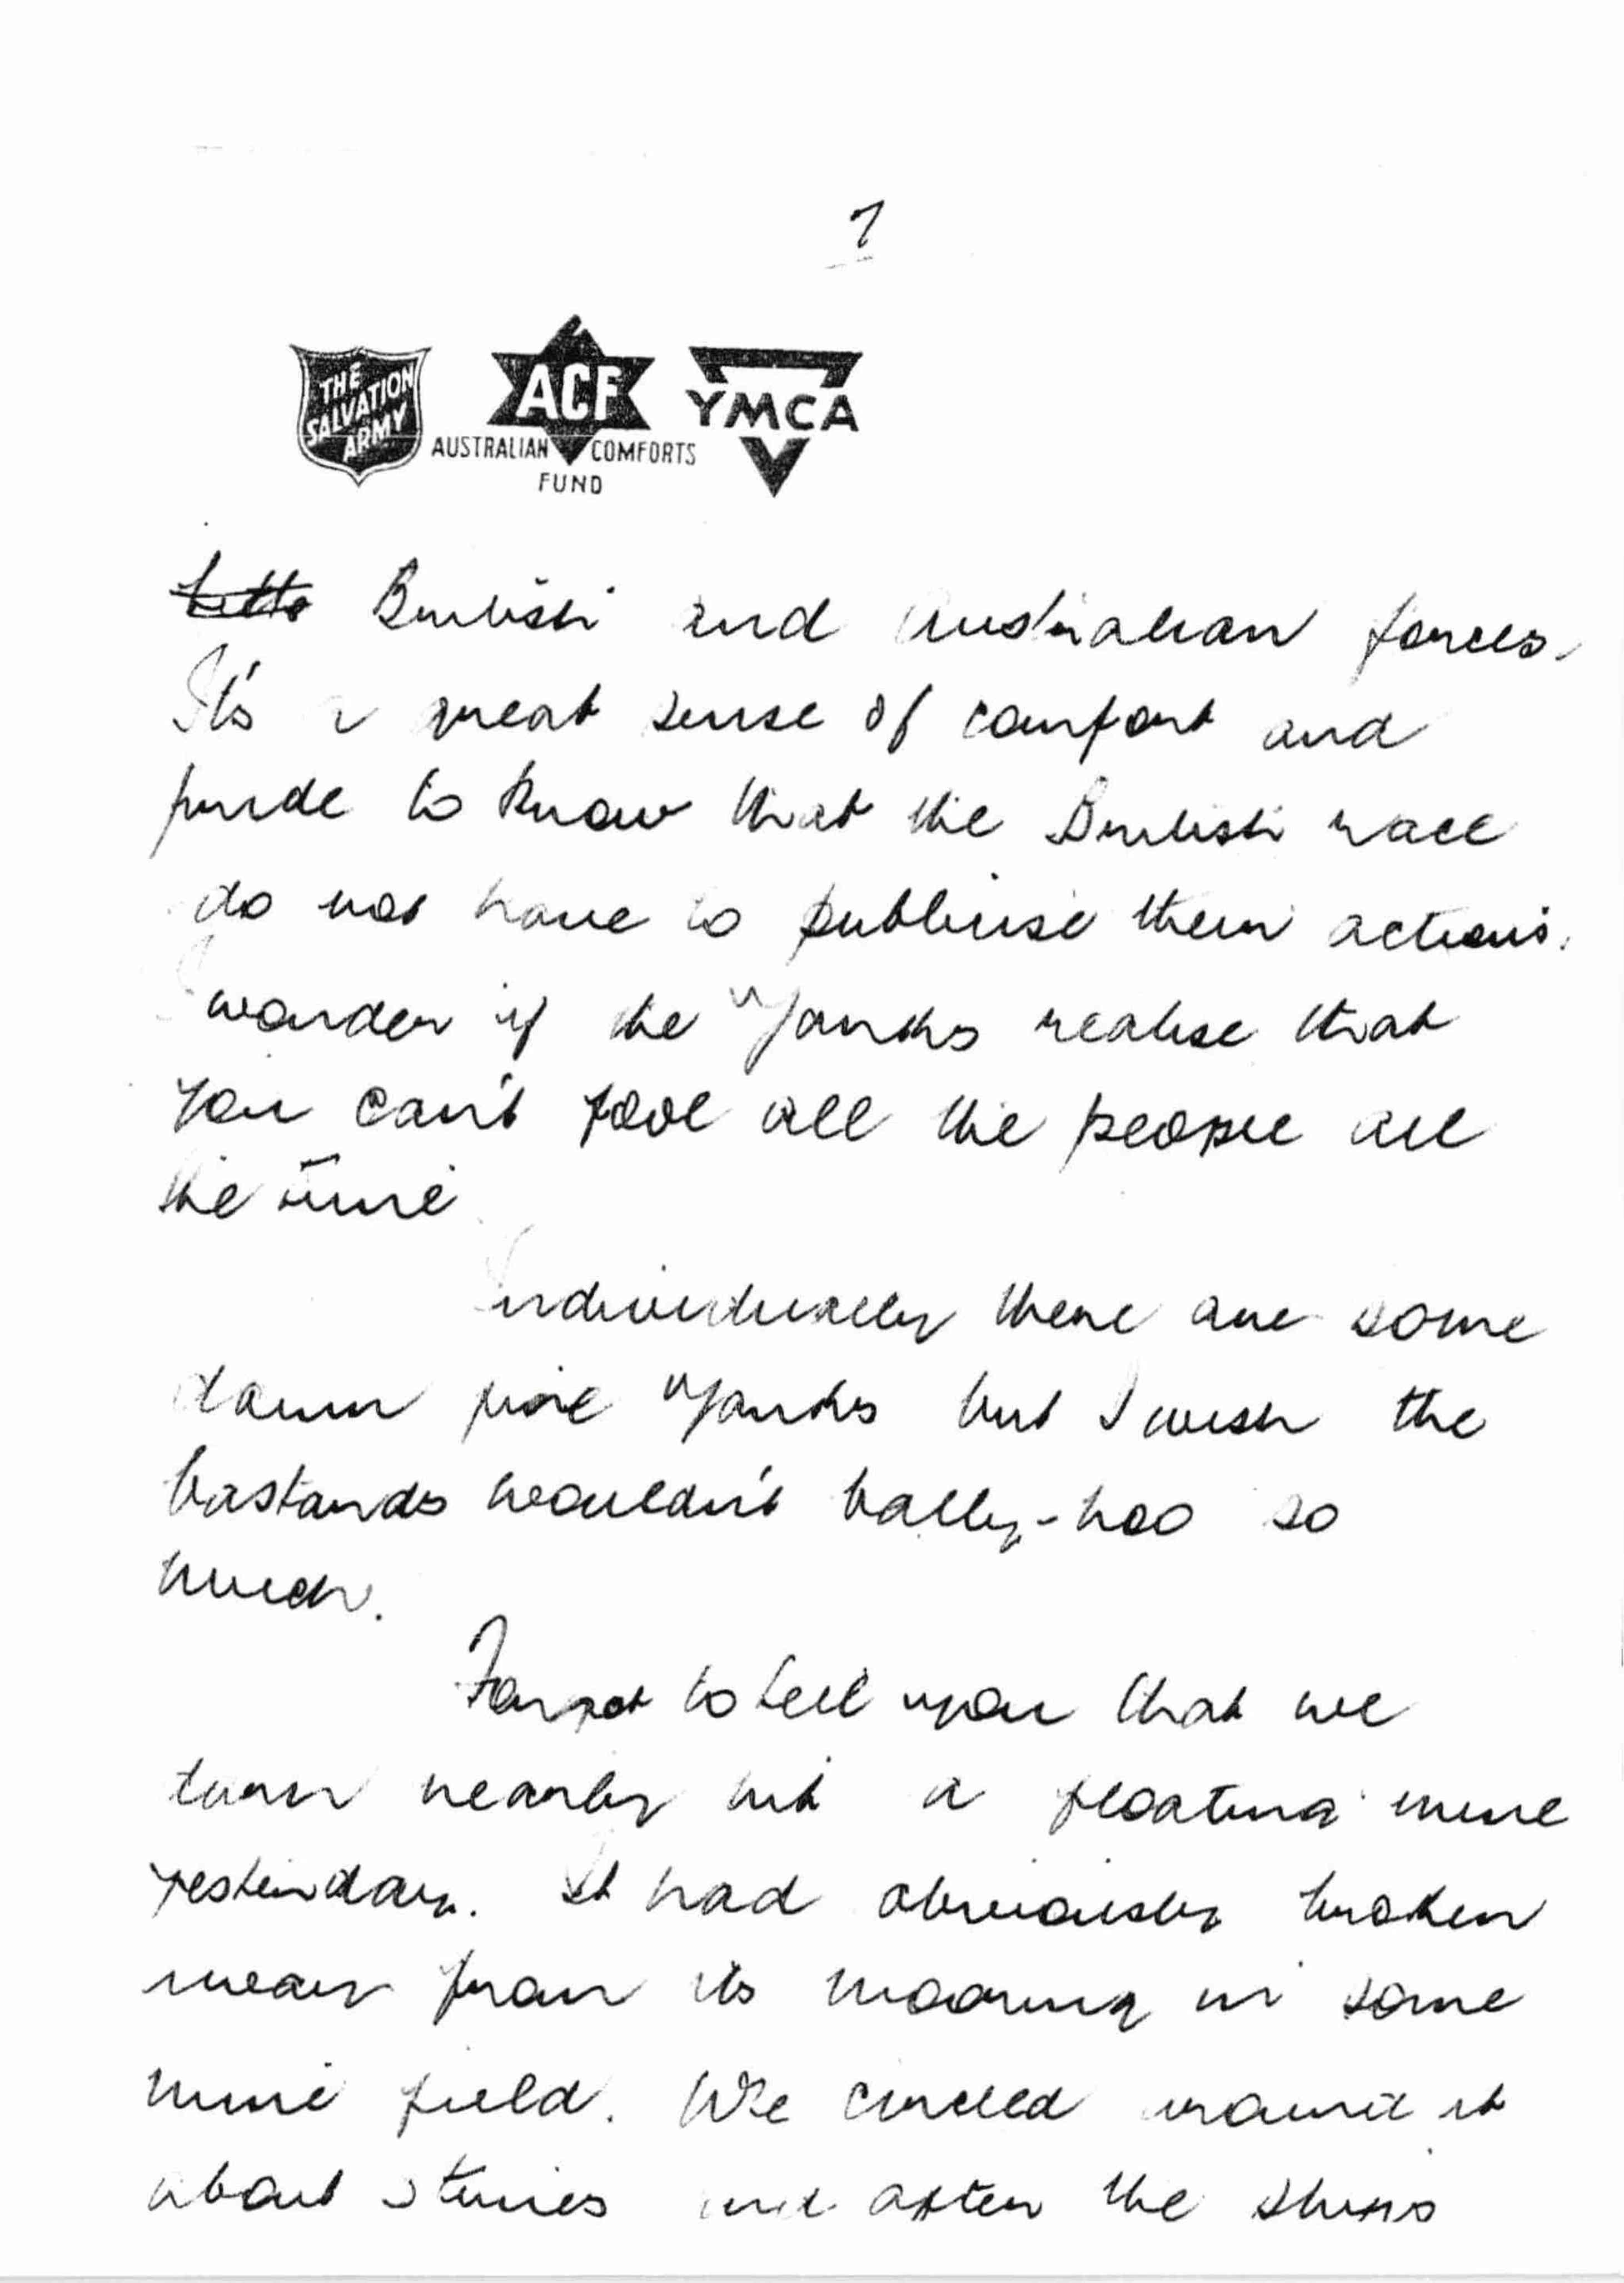 7
THE
SALVATION
ARMY
ACF
AUSTRALIAN COMFORTS
FUND
YMCA
British and Australian forces.
It's a great sense of comfort and
pride to know that the British race
do not have to publicise their actions.
I wonder if the Yanks realise that
you can't fool all the people all
the time
Individually there are some
damn fine Yanks but I wish the
bastards wouldn't bally-hoo so
much.
Forgot to tell you that we
nearly hit a floating mine
yesterday. It had obviously broken
away from its mooring in some
mine field. We circled around it
about 3 times and after the ships